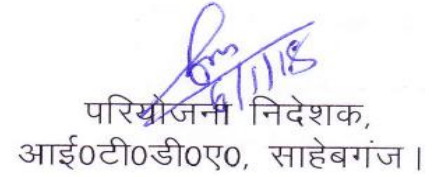 6/1/18
परियोजना निदेशक,
आई०टी०डी०ए०, साहेबगंज।